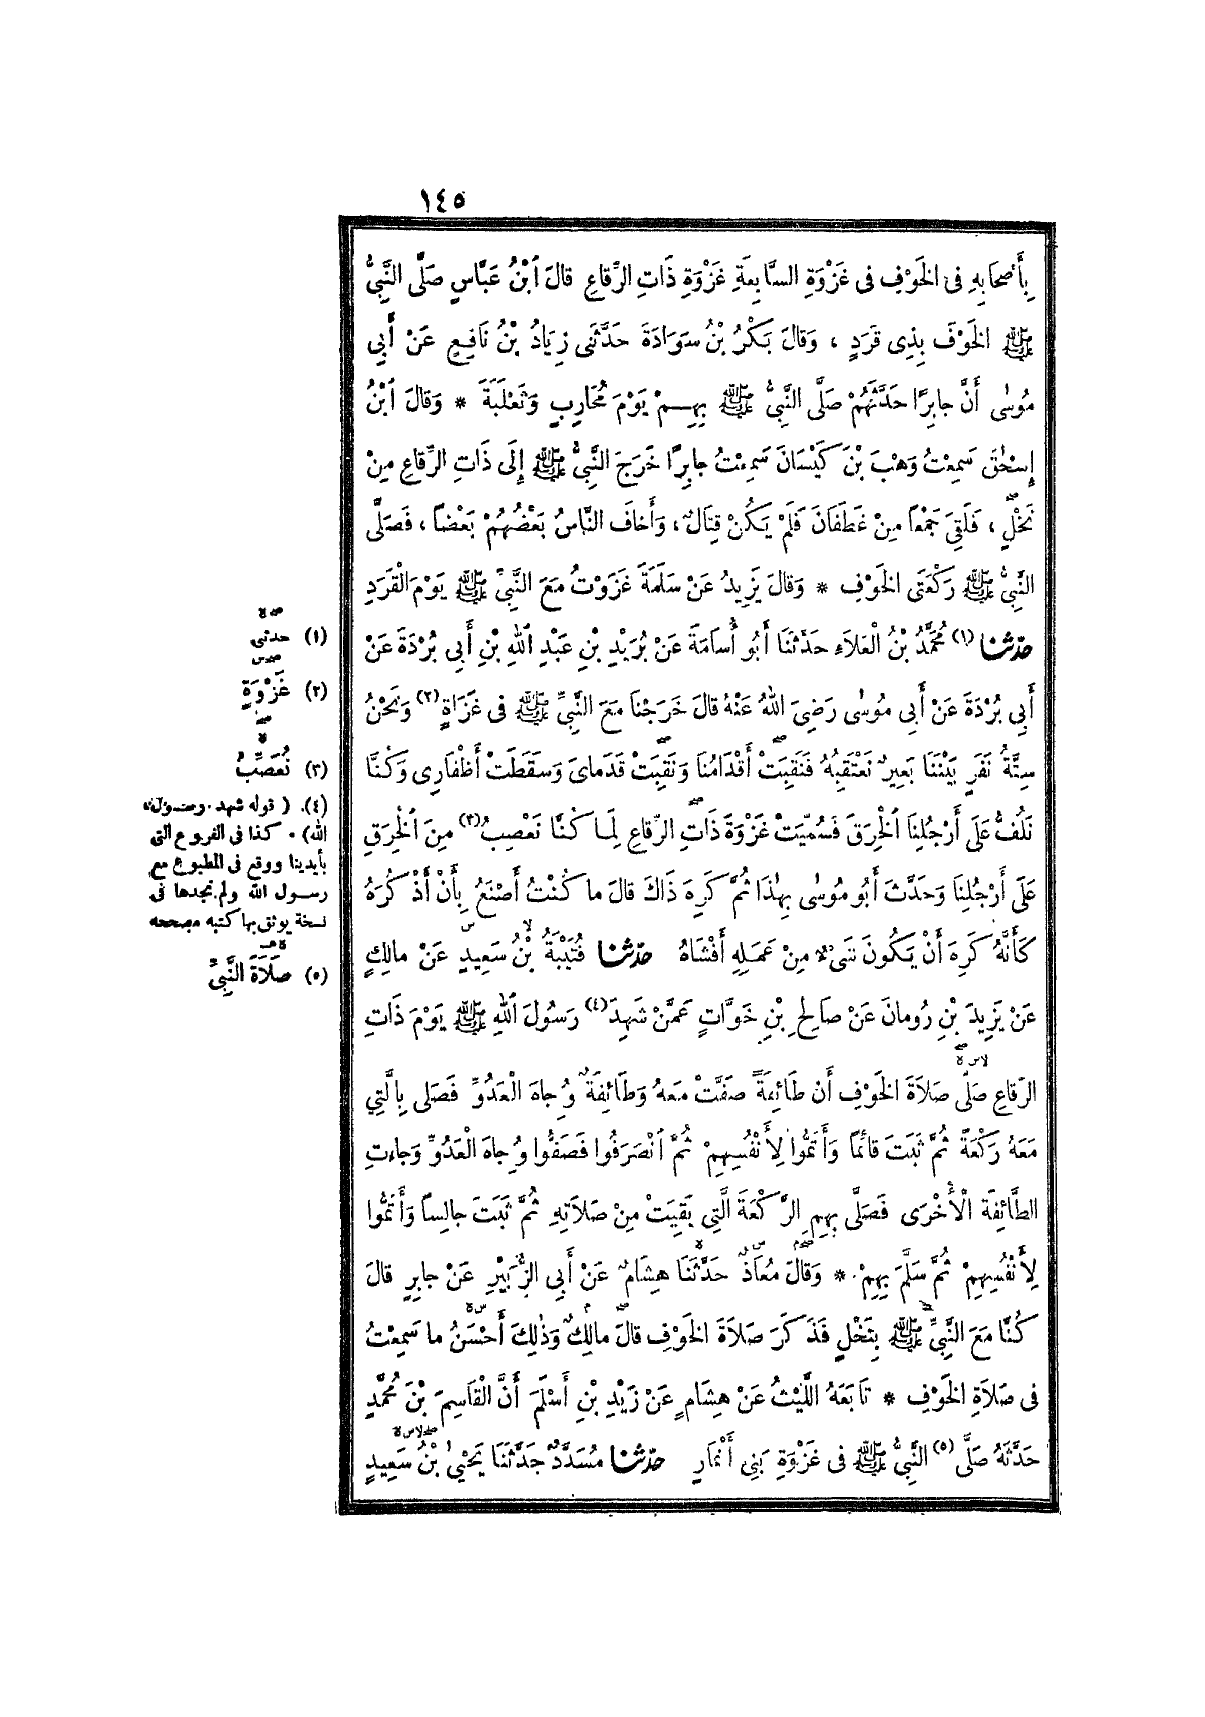 ١٤٥
بِأَصْحَابِهِ فِى الْخَوْفِ فِى غَزْوَةِ السَّابِعَةِ غَزْوَةِ ذَاتِ الرِّقَاعِ قَالَ ٱبْنُ عَبَّاسٍ صَلَّى النَّبِىُّ
ﷺ الْخَوْفَ بِذِى قَرَدٍ ، وَقَالَ بَكْرُ بْنُ سَوَادَةَ حَدَّثَنِى زِيَادُ بْنُ نَافِعٍ عَنْ أَبِى
مُوسٰى أَنَّ جَابِرًا حَدَّثَهُمْ صَلَّى النَّبِىُّ ﷺ بِهِمْ يَوْمَ مُحَارِبٍ وَثَعْلَبَةَ * وَقَالَ ٱبْنُ
إِسْحٰقَ سَمِعْتُ وَهْبَ بْنَ كَيْسَانَ سَمِعْتُ جَابِرًا خَرَجَ النَّبِىُّ ﷺ إِلَى ذَاتِ الرِّقَاعِ مِنْ
نَخْلٍ ، فَلَقِىَ جَمْعًا مِنْ غَطَفَانَ فَلَمْ يَكُنْ قِتَالٌ ، وَأَخَافَ النَّاسُ بَعْضُهُمْ بَعْضًا ، فَصَلَّى
النَّبِىُّ ﷺ رَكْعَتَىِ الْخَوْفِ * وَقَالَ يَزِيدُ عَنْ سَلَمَةَ غَزَوْتُ مَعَ النَّبِىِّ ﷺ يَوْمَ الْقَرَدِ
حدّثنا (١) مُحَمَّدُ بْنُ الْعَلَاءِ حَدَّثَنَا أَبُو أُسَامَةَ عَنْ بُرَيْدِ بْنِ عَبْدِ ٱللهِ بْنِ أَبِى بُرْدَةَ عَنْ
أَبِى بُرْدَةَ عَنْ أَبِى مُوسٰى رَضِىَ اللهُ عَنْهُ قَالَ خَرَجْنَا مَعَ النَّبِىِّ ﷺ فِى غَزَاةٍ (٢) وَنَحْنُ
سِتَّةُ نَفَرٍ بَيْنَنَا بَعِيرٌ نَعْتَقِبُهُ فَنَقِبَتْ أَقْدَامُنَا وَنَقِبَتْ قَدَمَاىَ وَسَقَطَتْ أَظْفَارِى وَكُنَّا
نَلُفُّ عَلَى أَرْجُلِنَا ٱلْخِرَقَ فَسُمِّيَتْ غَزْوَةَ ذَاتِ الرِّقَاعِ لِمَا كُنَّا نَعْصِبُ (٣) مِنَ ٱلْخِرَقِ
عَلَى أَرْجُلِنَا وَحَدَّثَ أَبُو مُوسٰى بِهٰذَا ثُمَّ كَرِهَ ذَاكَ قَالَ مَا كُنْتُ أَصْنَعُ بِأَنْ أَذْكُرَهُ
كَأَنَّهُ كَرِهَ أَنْ يَكُونَ شَىْءٌ مِنْ عَمَلِهِ أَفْشَاهُ حدّثنا قُتَيْبَةُ بْنُ سَعِيدٍ عَنْ مَالِكٍ
عَنْ يَزِيدَ بْنِ رُومَانَ عَنْ صَالِحِ بْنِ خَوَّاتٍ عَمَّنْ شَهِدَ (٤) رَسُولَ ٱللهِ ﷺ يَوْمَ ذَاتِ
الرِّقَاعِ صَلَّى صَلَاةَ الْخَوْفِ أَنَّ طَائِفَةً صَفَّتْ مَعَهُ وَطَائِفَةٌ وُجَاهَ الْعَدُوِّ فَصَلَّى بِالَّتِى
مَعَهُ رَكْعَةً ثُمَّ ثَبَتَ قَائِمًا وَأَتَمُّوا لِأَنْفُسِهِمْ ثُمَّ ٱنْصَرَفُوا فَصَفُّوا وُجَاهَ الْعَدُوِّ وَجَاءَتِ
الطَّائِفَةُ الْأُخْرَى فَصَلَّى بِهِمِ الرَّكْعَةَ الَّتِى بَقِيَتْ مِنْ صَلَاتِهِ ثُمَّ ثَبَتَ جَالِسًا وَأَتَمُّوا
لِأَنْفُسِهِمْ ثُمَّ سَلَّمَ بِهِمْ * وَقَالَ مُعَاذٌ حَدَّثَنَا هِشَامٌ عَنْ أَبِى الزُّبَيْرِ عَنْ جَابِرٍ قَالَ
كُنَّا مَعَ النَّبِىِّ ﷺ بِنَخْلٍ فَذَكَرَ صَلَاةَ الْخَوْفِ قَالَ مَالِكٌ وَذٰلِكَ أَحْسَنُ مَا سَمِعْتُ
فِى صَلَاةِ الْخَوْفِ * تَابَعَهُ اللَّيْثُ عَنْ هِشَامٍ عَنْ زَيْدِ بْنِ أَسْلَمَ أَنَّ الْقَاسِمَ بْنَ مُحَمَّدٍ
حَدَّثَهُ صَلَّى (٥) النَّبِىُّ ﷺ فِى غَزْوَةِ بَنِى أَنْمَارٍ حدّثنا مُسَدَّدٌ حَدَّثَنَا يَحْيٰى بْنُ سَعِيدٍ
(١) حدثنى
(٢) غَزْوَةٍ
(٣) نُعَصِّبُ
(٤) ( قوله شهد رسول
الله) . كذا فى الفروع التى
بأيدينا ووقع فى المطبوع مع
رسول الله ولم نجدها فى
نسخة يوثق بها كتبه مصححه
(٥) صَلَاةَ النَّبِىِّ